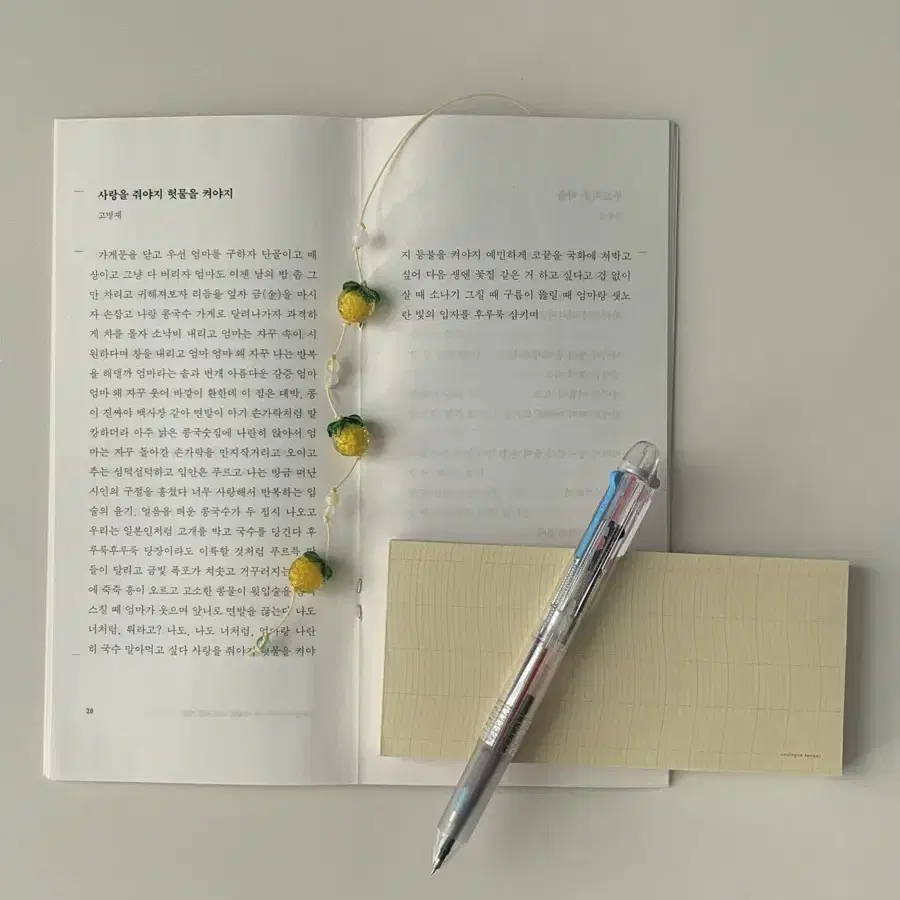 사랑을 줘야지 헛물을 켜야지
고명재
가게문을 닫고 우선 엄마를 구하자 단골이고 매
상이고 그냥 다 버리자 엄마도 이젠 남의 밥 좀 그
만 차리고 귀해져보자 리듬을 엎자 금(金)을 마시
자 손잡고 나랑 콩국수 가게로 달려나가자 과격하
게 차를 몰자 소낙비 내리고 엄마는 자꾸 속이 시
원하다며 창을 내리고 엄마 엄마 왜 자꾸 나는 반복
을 해댈까 엄마라는 솥과 번개 아름다운 갈증 엄마
엄마 왜 자꾸 웃어 바깥이 환한데 이 집은 대박, 콩
이 진짜야 백사장 같아 면발이 아기 손가락처럼 말
캉하더라 아주 낡은 콩국숫집에 나란히 앉아서 엄
마는 자꾸 돌아간 손가락을 만지작거리고 오이고
추는 섬덕섬덕하고 입안은 푸르고 나는 방금 떠난
시인의 구절을 훔쳤다 너무 사랑해서 반복하는 입
술의 윤기, 얼음을 띄운 콩국수가 두 접시 나오고
우리는 일본인처럼 고개를 박고 국수를 당긴다 후
루룩후루룩 당장이라도 이륙할 것처럼 푸르륵
들이 달리고 금빛 폭포가 치솟고 거꾸러지는
에 죽죽 흠이 오르고 고소한 콩물이 윗입술을
스칠 때 엄마가 웃으며 앞니로 면발을 끊는다 나도
너처럼, 뭐라고? 나도, 나도 너처럼, 엄마랑 나란
히 국수 말아먹고 싶다 사랑을 줘야지 헛물을 켜야
20
지 등불을 켜야지 예민하게 코끝을 국화에 처박고
싶어 다음 생엔 꽃집 같은 거 하고 싶다고 겁 없이
살 때 소나기 그칠 때 구름이 뚫릴 때 엄마랑 샛노
란 빛의 입자를 후루룩 삼키며
analogue keeper